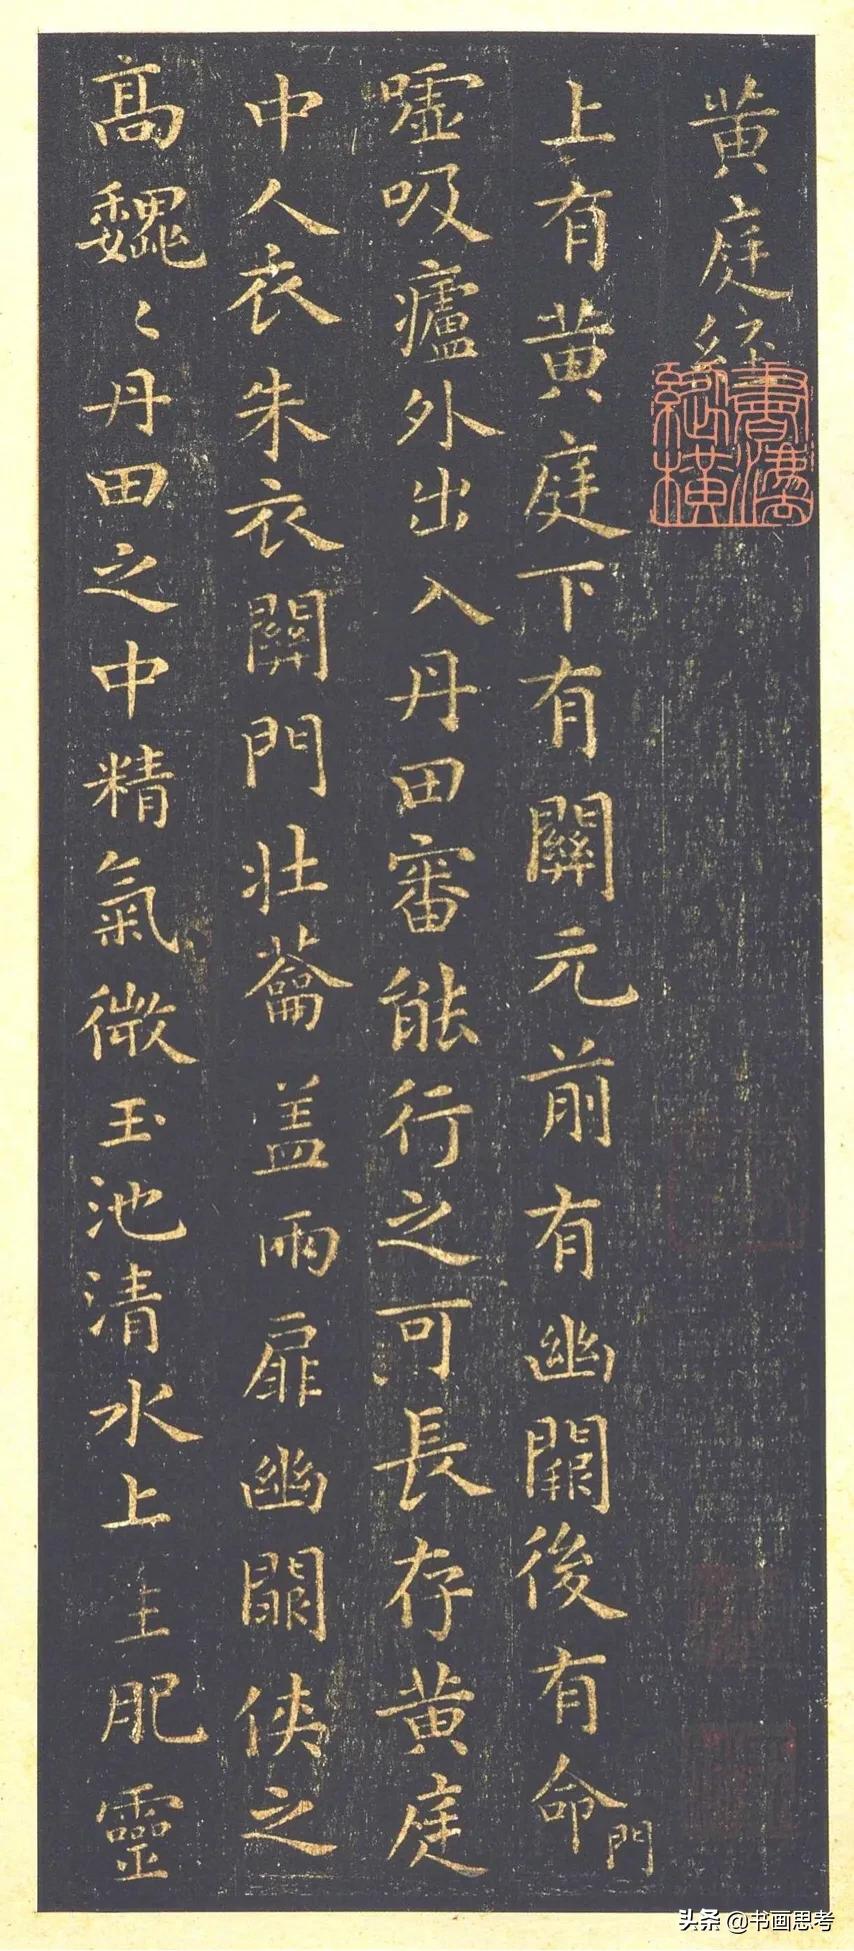 黄庭經
上有黄庭下有關元前有幽闕後有命門
嘘吸廬外出入丹田審能行之可長存黄庭
中人衣朱衣關門壯蘥盖兩扉幽闕俠之
高魏〻丹田之中精氣微玉池清水上生肥靈
头条 @书画思考